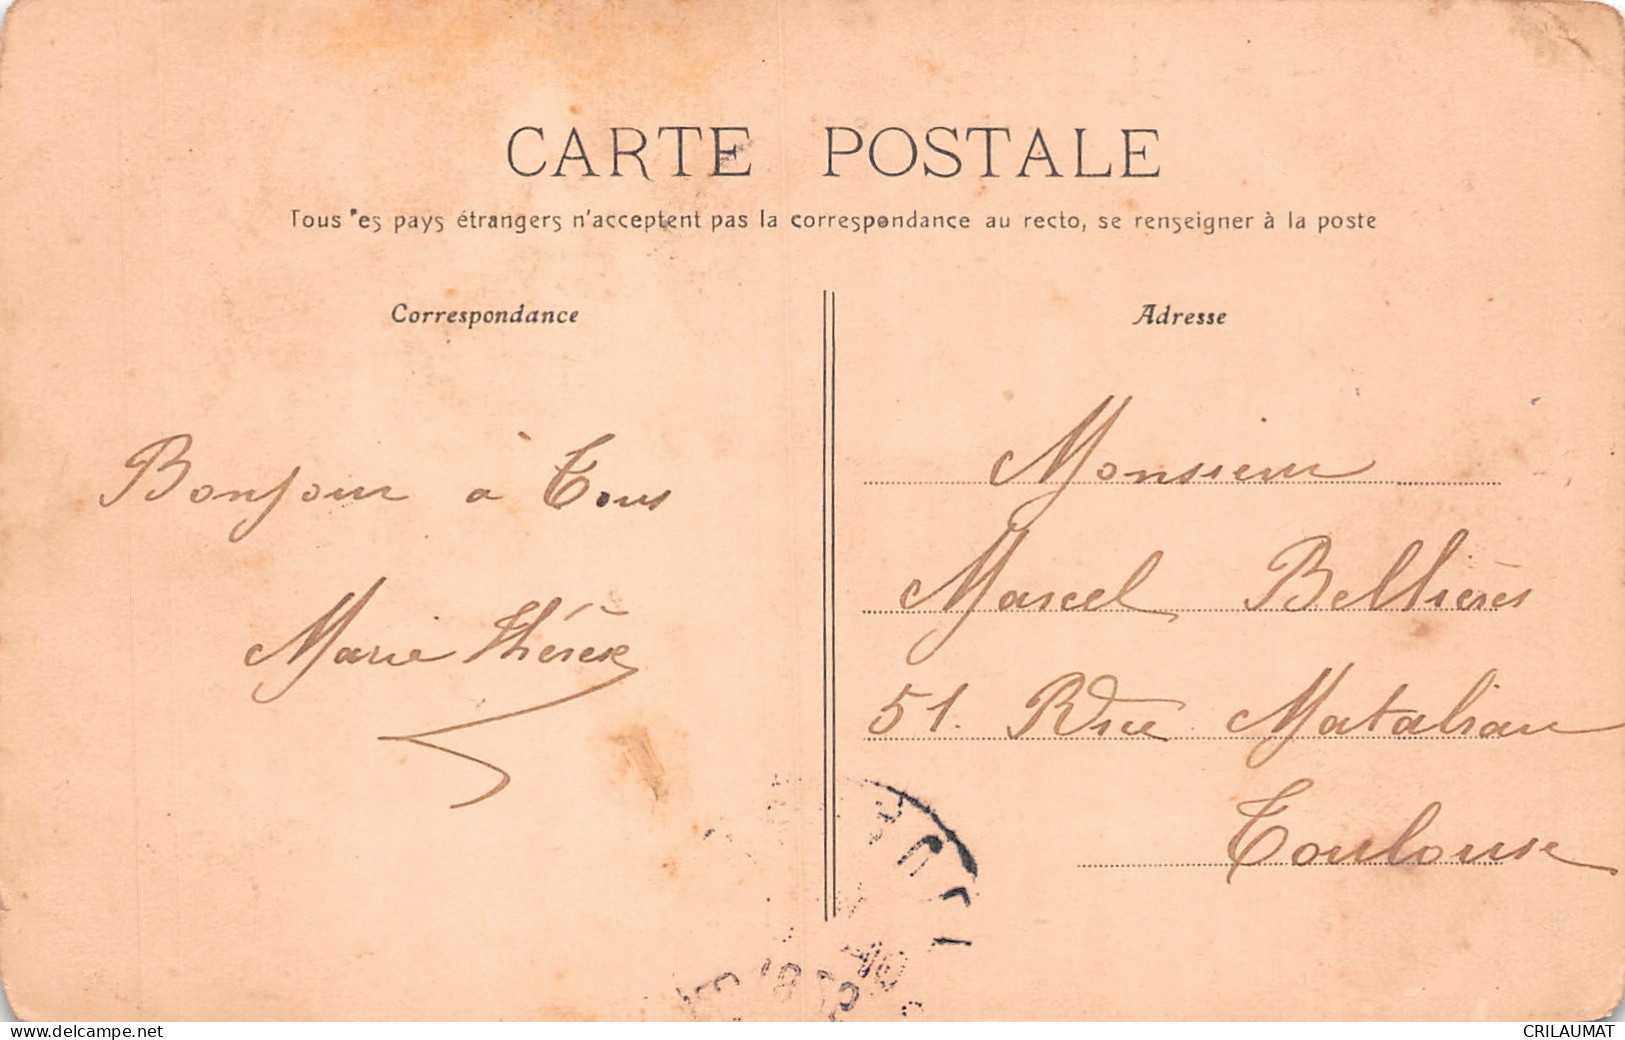 CARTE POSTALE
Tous les pays étrangers n'acceptent pas la correspondance au recto, se renseigner à la poste
Correspondance
Adresse
Bonjour à Tous
Marie Thérèse
Monsieur
Marcel Bellières
51. Rue Matabiau
Toulouse
www.delcampe.net
CRILAUMAT